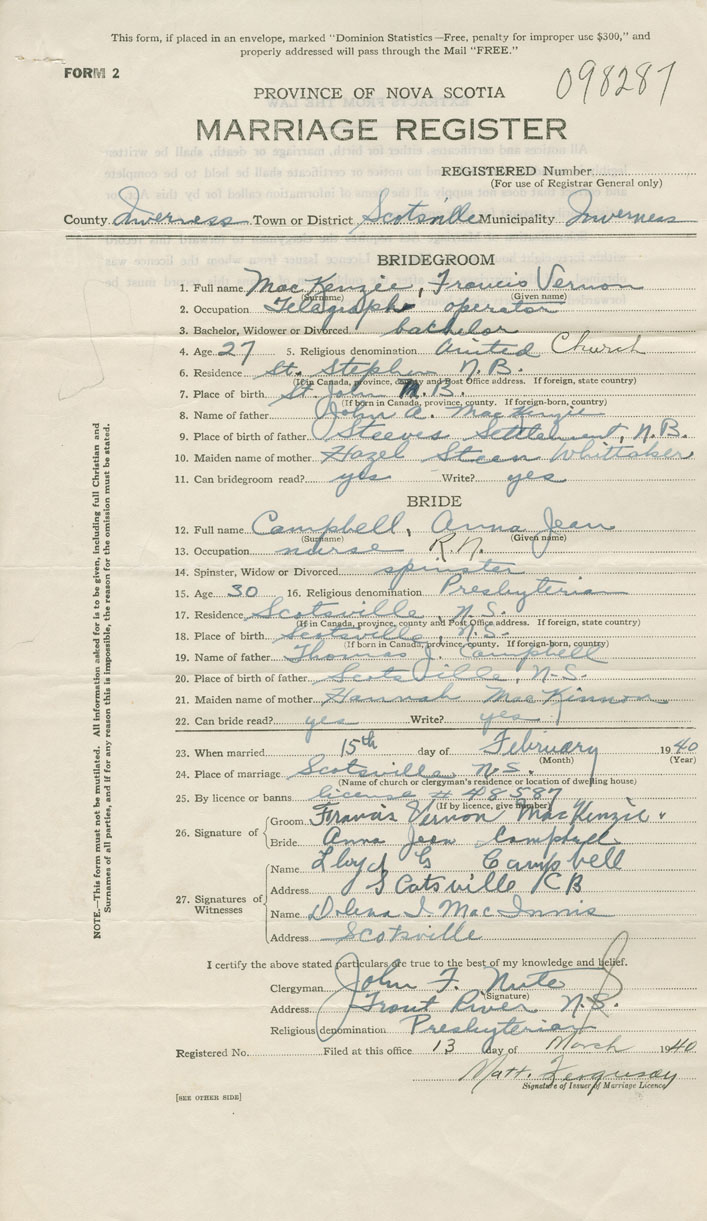 This form, if placed in an envelope, marked "Dominion Statistics—Free, penalty for improper use $300," and
properly addressed will pass through the Mail "FREE."
FORM 2
098287
PROVINCE OF NOVA SCOTIA
MARRIAGE REGISTER
REGISTERED Number
(For use of Registrar General only)
County Inverness Town or District Scotsville Municipality Inverness
BRIDEGROOM
1. Full name MacKenzie, Francis Vernon
(Surname) (Given name)
2. Occupation Telegraph operator
3. Bachelor, Widower or Divorced bachelor
4. Age 27 5. Religious denomination United Church
6. Residence St. Stephen N.B.
(If in Canada, province, county and Post Office address. If foreign, state country)
7. Place of birth St. John N.B.
(If born in Canada, province, county. If foreign-born, country)
8. Name of father John A. MacKenzie
9. Place of birth of father Steeves Settlement, N.B.
10. Maiden name of mother Hazel Steen Whittaker
11. Can bridegroom read? yes Write? yes
BRIDE
12. Full name Campbell, Anna Jean
(Surname) (Given name)
13. Occupation nurse R.N.
14. Spinster, Widow or Divorced spinster
15. Age 30 16. Religious denomination Presbyterian
17. Residence Scotsville, N.S.
(If in Canada, province, county and Post Office address. If foreign, state country)
18. Place of birth Scotsville, N.S.
(If born in Canada, province, county. If foreign-born, country)
19. Name of father Thomas J. Campbell
20. Place of birth of father Scotsville, N.S.
21. Maiden name of mother Hannah MacKinnon
22. Can bride read? yes Write? yes
23. When married 15th day of February 1940
(Month) (Year)
24. Place of marriage Scotsville N.S.
(Name of church or clergyman's residence or location of dwelling house)
25. By licence or banns license # 48587
(If by licence, give number)
26. Signature of
Groom Francis Vernon MacKenzie
Bride Anna Jean Campbell
27. Signatures of Witnesses
Name Lloyd G Campbell
Address Scotsville CB
Name Dolena I. MacInnis
Address Scotsville
I certify the above stated particulars are true to the best of my knowledge and belief.
Clergyman John F. Nute
(Signature)
Address Trout River N.S.
Religious denomination Presbyterian
Registered No. Filed at this office 13 day of March 1940
Matt. Ferguson
Signature of Issuer of Marriage Licence
[SEE OTHER SIDE]
NOTE.—This form must not be mutilated. All information asked for is to be given, including full Christian and
Surnames of all parties, and if for any reason this is impossible, the reason for the omission must be stated.